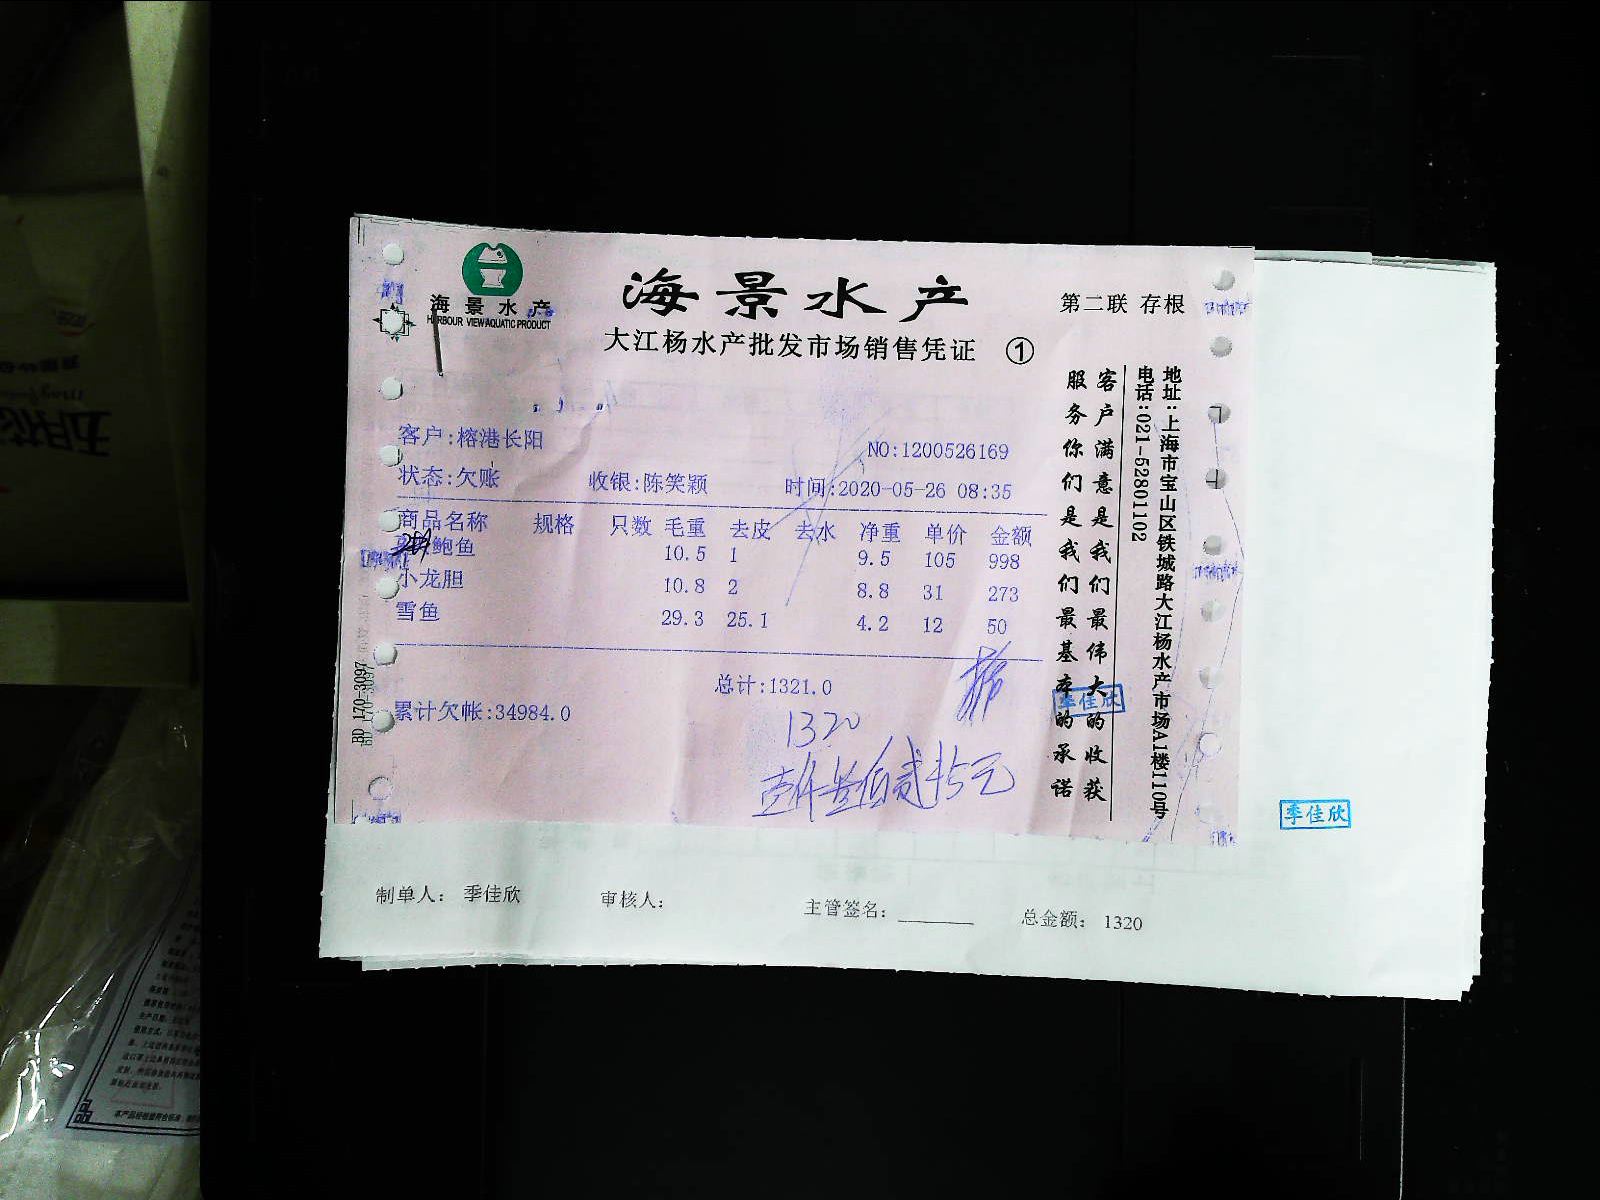 海景水产
HARBOUR VIEW AQUATIC PRODUCT
海景水产
第二联 存根
大江杨水产批发市场销售凭证 ①
客户:榕港长阳
NO:1200526169
状态:欠账 收银:陈笑颖 时间:2020-05-26 08:35
商品名称 规格 只数 毛重 去皮 去水 净重 单价 金额
鲍鱼 10.5 1 9.5 105 998
小龙胆 10.8 2 8.8 31 273
雪鱼 29.3 25.1 4.2 12 50
总计:1321.0
累计欠帐:34984.0
1320
壹仟叁佰贰拾元
客户满意是我们最伟大的收获
服务你们是我们最基本的承诺
地址:上海市宝山区铁城路大江杨水产市场A1楼110号
电话:021-52801102
BD 170-3097
季佳欣
季佳欣
制单人: 季佳欣 审核人: 主管签名: 总金额: 1320